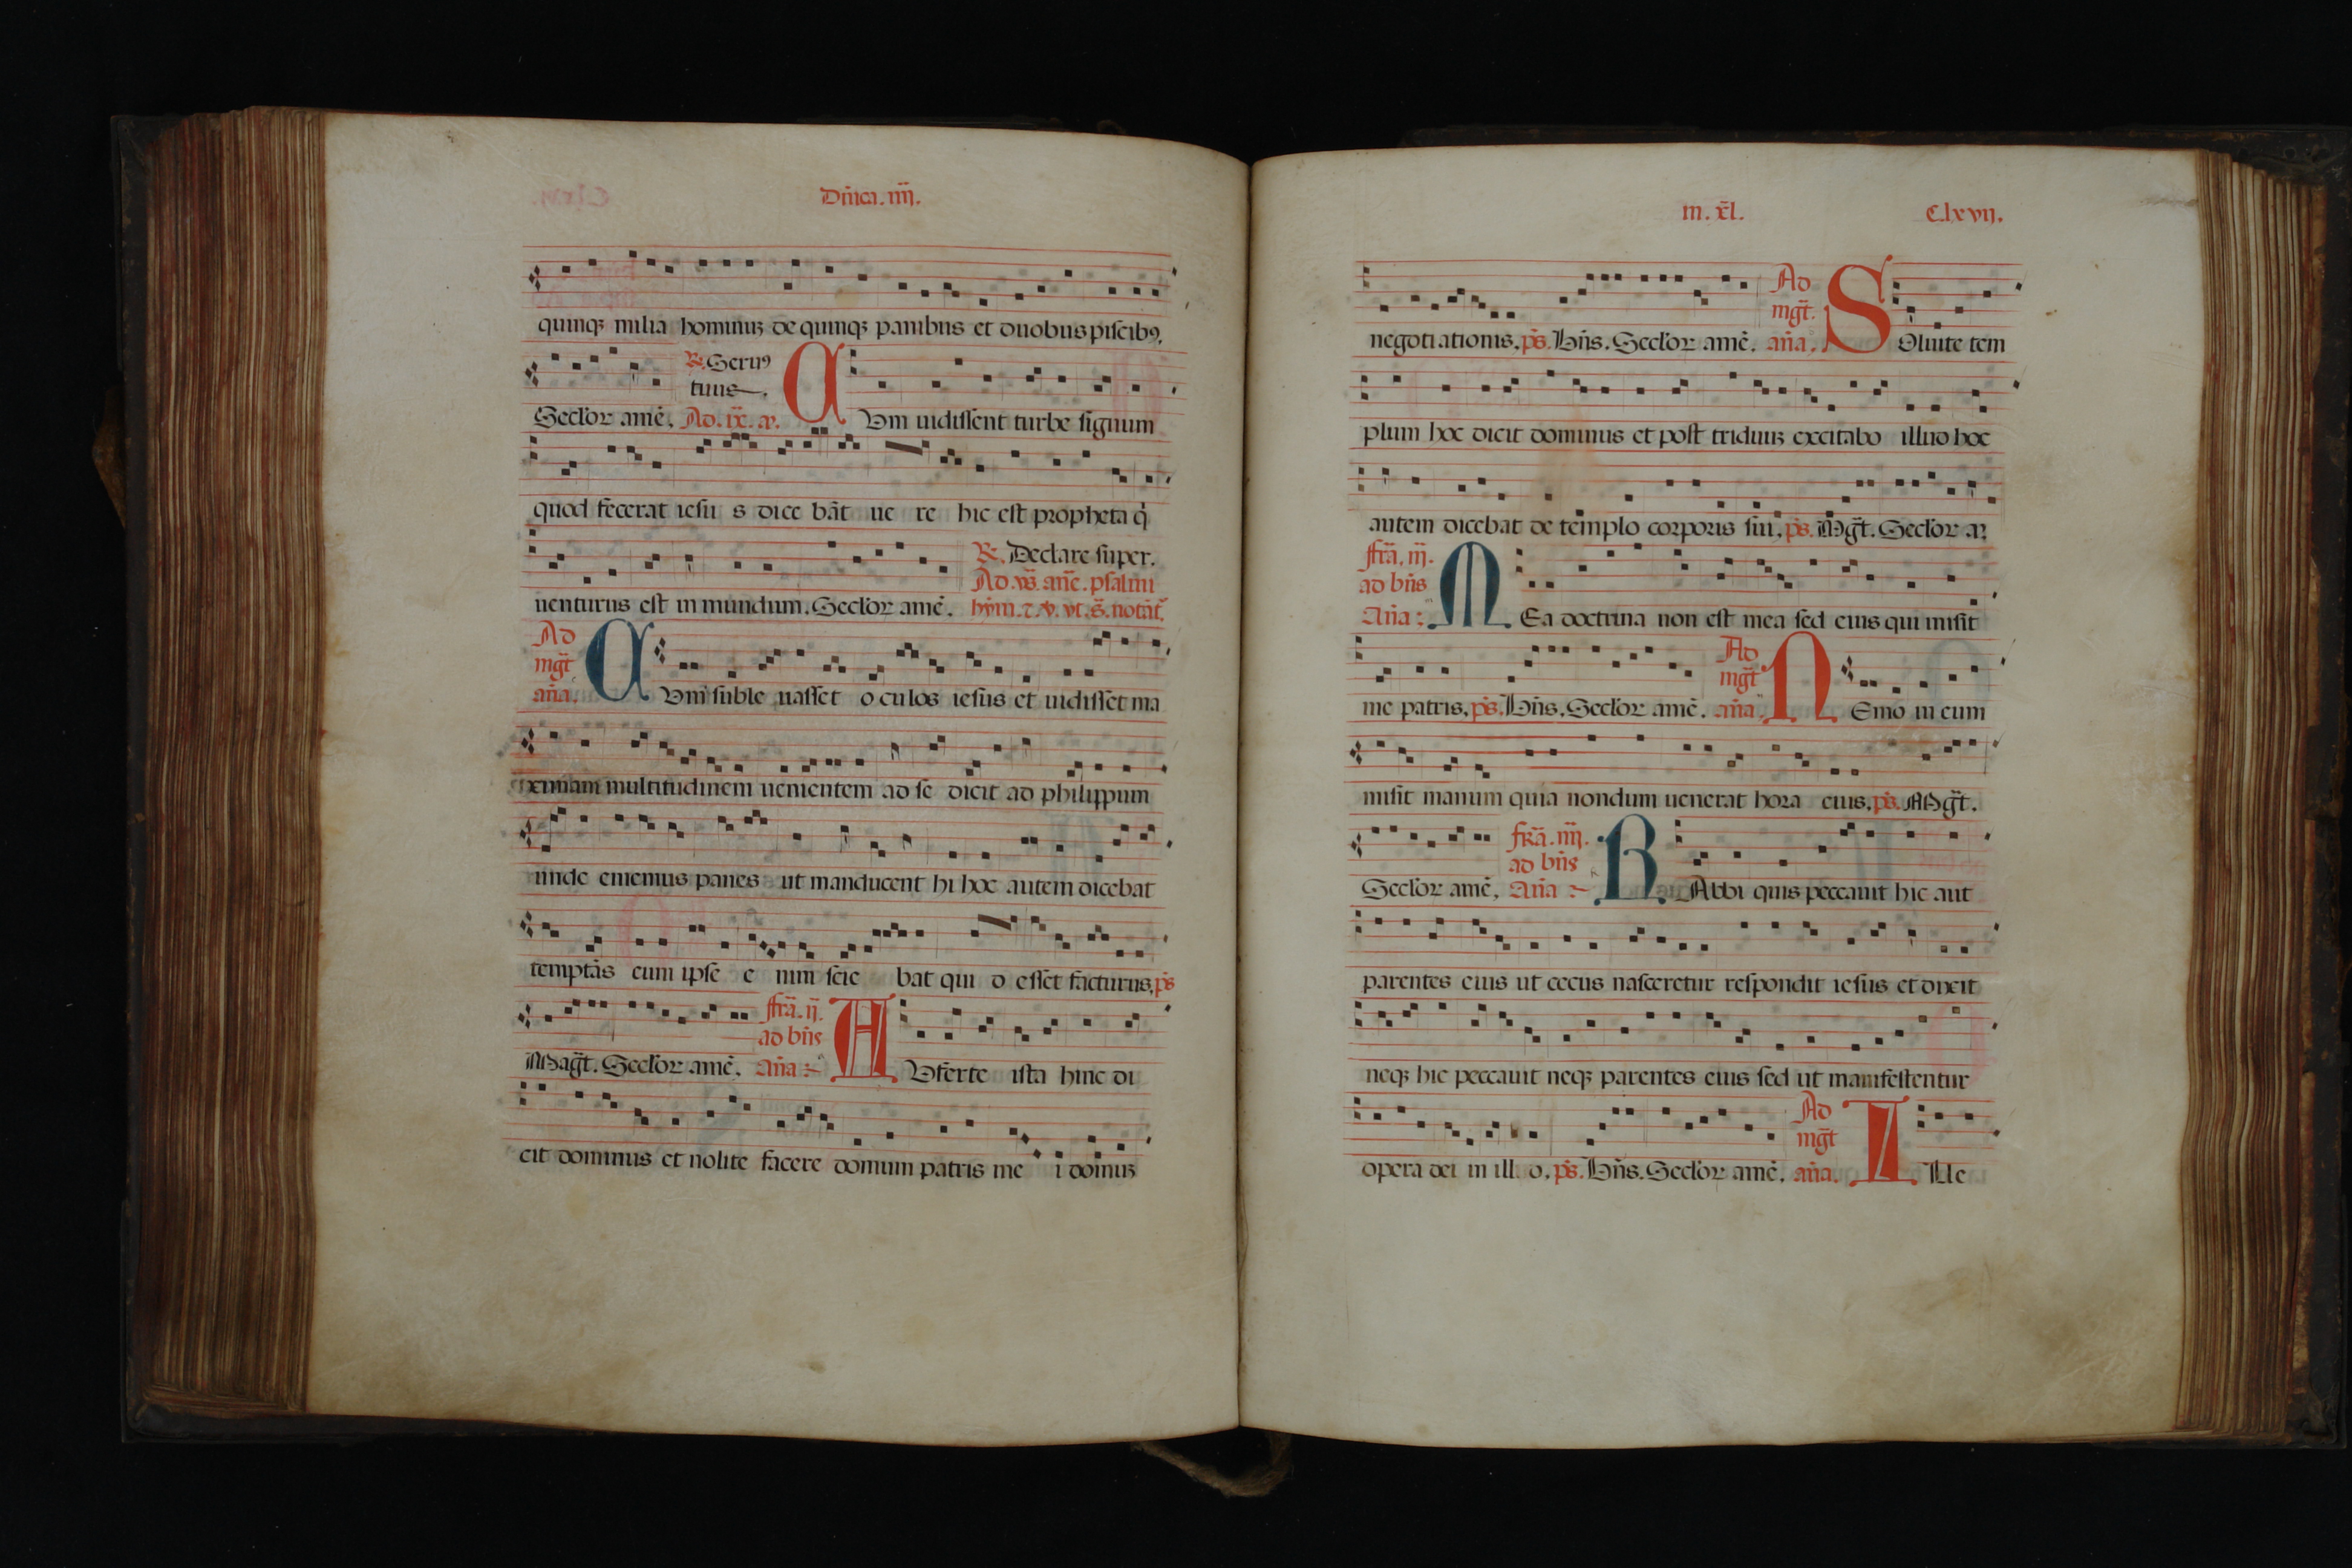 Dñica. iiij.
quinqꝫ milia hominuꝫ de quinqꝫ panibus et duobus piscibꝰ.
℟. Seruꝰ
tuus.
Secl'or amē. Ad. ix. añ. C Vm uidissent turbe signum
quod fecerat iesu s dice bāt ue re hic est propheta q̇
uenturus est in mundum. Secl'or amē.
℟. Declare super.
Ad. vš. anē. psalmi
hỹm. ⁊. v. vt. š. notāt'.
Ad
mḡt
añа. C Vm suble uasset o culos iesus et uidisset ma
ximam multitudinem uenientem ad se dicit ad philippum
unde ememus panes ut manducent hi hoc autem dicebat
temptās eum ipse e nim scie bat qui d esset facturus. p̄s
Magt̄. Secl'or amē.
fr̄a. ij.
ad bñs
Aña: A Vferte ista hinc di
cit dominus et nolite facere domum patris me i domuꝫ
in. xl̄. C.lxvij.
negoti ationis. p̄s. Bñs. Secl'or amē.
Ad
mḡt.
aña. S Oluite tem
plum hoc dicit dominus et post triduuꝫ excitabo illud hoc
autem dicebat de templo corporis sui. p̄s. Mgt̄. Secl'or a.
fr̄a. iij.
ad bñs
Aña: M Ea doctrina non est mea sed eius qui misit
me patris. p̄s. Bñs. Secl'or amē.
Ad
mḡt
aña. N Emo in eum
misit manum quia nondum uenerat hora eius. p̄s. Mgt̄.
Secl'or amē.
fr̄a. iiij.
ad bñs
Aña R Abbi quis peccauit hic aut
parentes eius ut cecus nasceretur respondit iesus et dixit
neqꝫ hic peccauit neqꝫ parentes eius sed ut manifestentur
opera dei in ill o. p̄s. Bñs. Secl'or amē.
Ad
mḡt
aña. I Lle